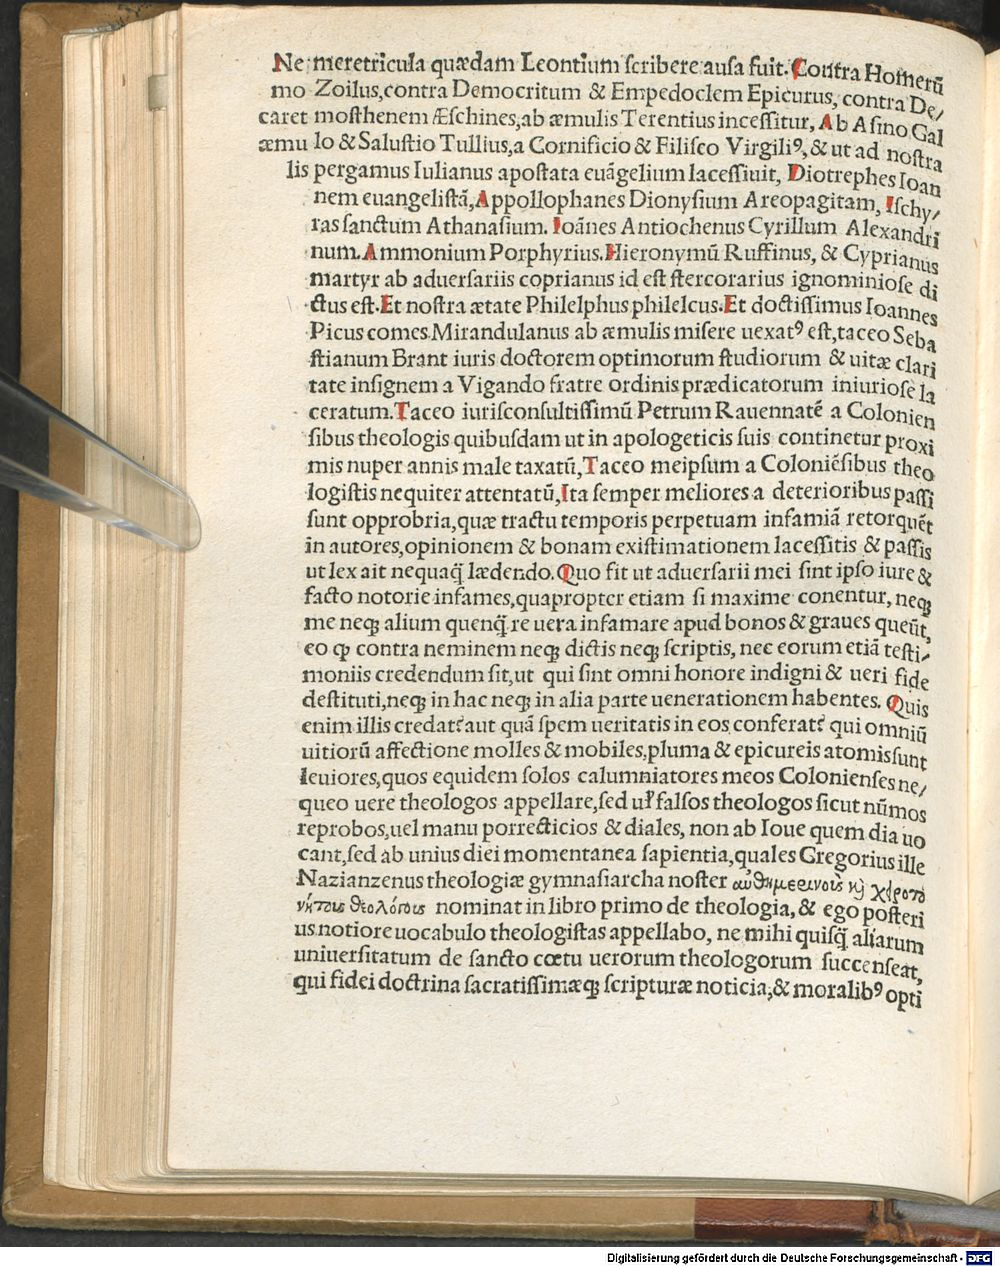 Ne meretricula quædam Leontium scribere ausa fuit. Contra Homerū
mo Zoilus, contra Democritum & Empedoclem Epicurus, contra De/
caret mosthenem Æschines, ab æmulis Terentius incessitur, Ab Asino Gal
æmu lo & Salustio Tullius, a Cornificio & Filisco Virgiliꝰ, & ut ad nostra
lis pergamus Iulianus apostata euāgelium lacessiuit, Diotrephes Ioan
nem euangelistā, Appollophanes Dionysium Areopagitam, Ischy/
ras sanctum Athanasium. Ioānes Antiochenus Cyrillum Alexandri
num. Ammonium Porphyrius. Hieronymū Ruffinus, & Cyprianus
martyr ab aduersariis coprianus id est stercorarius ignominiose di
ctus est. Et nostra ætate Philelphus philelcus. Et doctissimus Ioannes
Picus comes Mirandulanus ab æmulis misere uexatꝰ est, taceo Seba
stianum Brant iuris doctorem optimorum studiorum & uitæ clari
tate insignem a Vigando fratre ordinis prædicatorum iniuriose la
ceratum. Taceo iurisconsultissimū Petrum Rauennatē a Colonien
sibus theologis quibusdam ut in apologeticis suis continetur proxi
mis nuper annis male taxatū, Taceo meipsum a Coloniēsibus theo
logistis nequiter attentatū, Ita semper meliores a deterioribus passi
sunt opprobria, quæ tractu temporis perpetuam infamiā retorquēt
in autores, opinionem & bonam existimationem lacessitis & passis
ut lex ait nequaq̄ lædendo. Quo fit ut aduersarii mei sint ipso iure &
facto notorie infames, quapropter etiam si maxime conentur, neqꝫ
me neqꝫ alium quenq̄ re uera infamare apud bonos & graues queūt,
eo ꝙ contra neminem neqꝫ dictis neqꝫ scriptis, nec eorum etiā testi/
moniis credendum sit, ut qui sint omni honore indigni & ueri fide
destituti, neqꝫ in hac neqꝫ in alia parte uenerationem habentes. Quis
enim illis credat? aut quā spem ueritatis in eos conferat? qui omniū
uitiorū affectione molles & mobiles, pluma & epicureis atomis sunt
leuiores, quos equidem solos calumniatores meos Colonienses ne/
queo uere theologos appellare, sed uł falsos theologos sicut nūmos
reprobos, uel manu porrecticios & diales, non ab Ioue quem dia uo
cant, sed ab unius diei momentanea sapientia, quales Gregorius ille
Nazianzenus theologiæ gymnasiarcha noster αὐθημερινοὺς κỳ χειροτο
νήτους θεολόγους nominat in libro primo de theologia, & ego posteri
us notiore uocabulo theologistas appellabo, ne mihi quisq̄ aliarum
uniuersitatum de sancto cœtu uerorum theologorum succenseat,
qui fidei doctrina sacratissimæqꝫ scripturæ noticia, & moralibꝰ opti
Digitalisierung gefördert durch die Deutsche Forschungsgemeinschaft - DFG